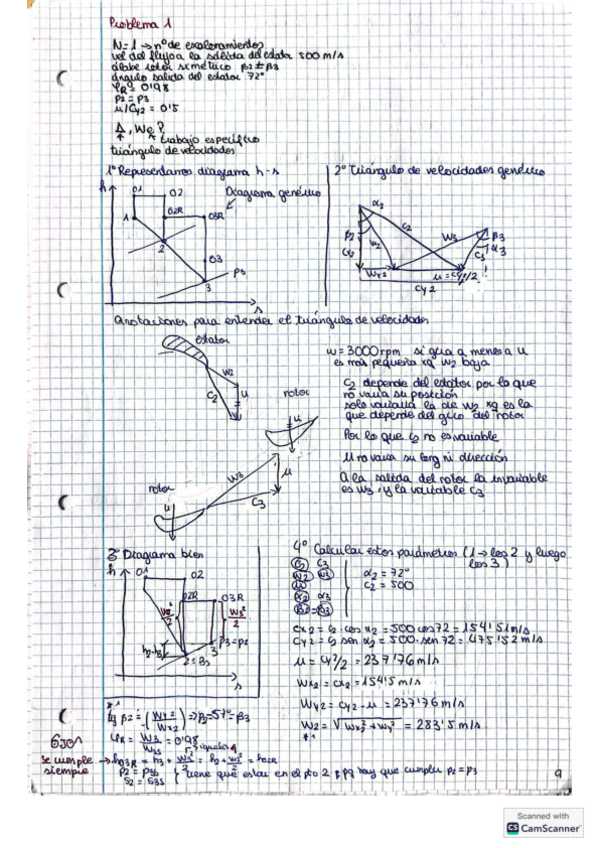 Problema 1
N=1 → nº de escalonamientos
vel del flujo a la salida del estator 500 m/s
álabe rotor simétrico β2 = β3
ángulo salida del estator 72º
φR = 0'98
p2 = p3
u/Cy2 = 0'5
Δ, We?
trabajo específico
triángulo de velocidades
1º Representamos diagrama h-s
2º Triángulo de velocidades genérico
h
01
02
02R
03R
Diagrama genérico
1
2
03
3
P3
s
α2
β2
Cx2
W2
C2
W3
β3
α3
C3
Wy2
u = Cy2/2
Cy2
anotaciones para entender el triángulo de velocidades
estator
W2
C2
u
rotor
u
W3
u
C3
rotor
u
w = 3000 rpm si gira a menos a u
es más pequeña xq W2 baja
C2 depende del estator por lo que
no varía su posición
solo variaría la de W2 xq es la
que depende del giro del rotor
Por lo que C2 no es variable
u no varía su long ni dirección
A la salida del rotor la invariable
es W3 y la variable C3
3º Diagrama bien
h
01
02
02R
03R
3
P3 = P2
2 = 3s
s
4º Calcular estos parámetros (1 → los 2 y luego
los 3)
C2 C3
W2 W3
u
α2 α3
β2 = β3
α2 = 72º
C2 = 500
Cx2 = C2 · cos α2 = 500 cos 72 = 154'51 m/s
Cy2 = C2 sen α2 = 500 · sen 72 = 475'52 m/s
u = Cy2/2 = 237'76 m/s
Wx2 = Cx2 = 154'5 m/s
Wy2 = Cy2 - u = 237'76 m/s
W2 = √Wx2² + Wy² = 283'5 m/s
*1
*1
tg β2 = (Wy2/Wx2) ⇒ β2 = 57º = β3
φR = W3/W3s = 0'98
OJO!
se cumple siempre → h03R = h3 + W3²/2 = h2 + W2²/2 = h02R
P2 = P3s
S2 = S3s
tiene que estar en el pto 2 pq hay que cumplir p2 = p3
9
Scanned with
CS CamScanner